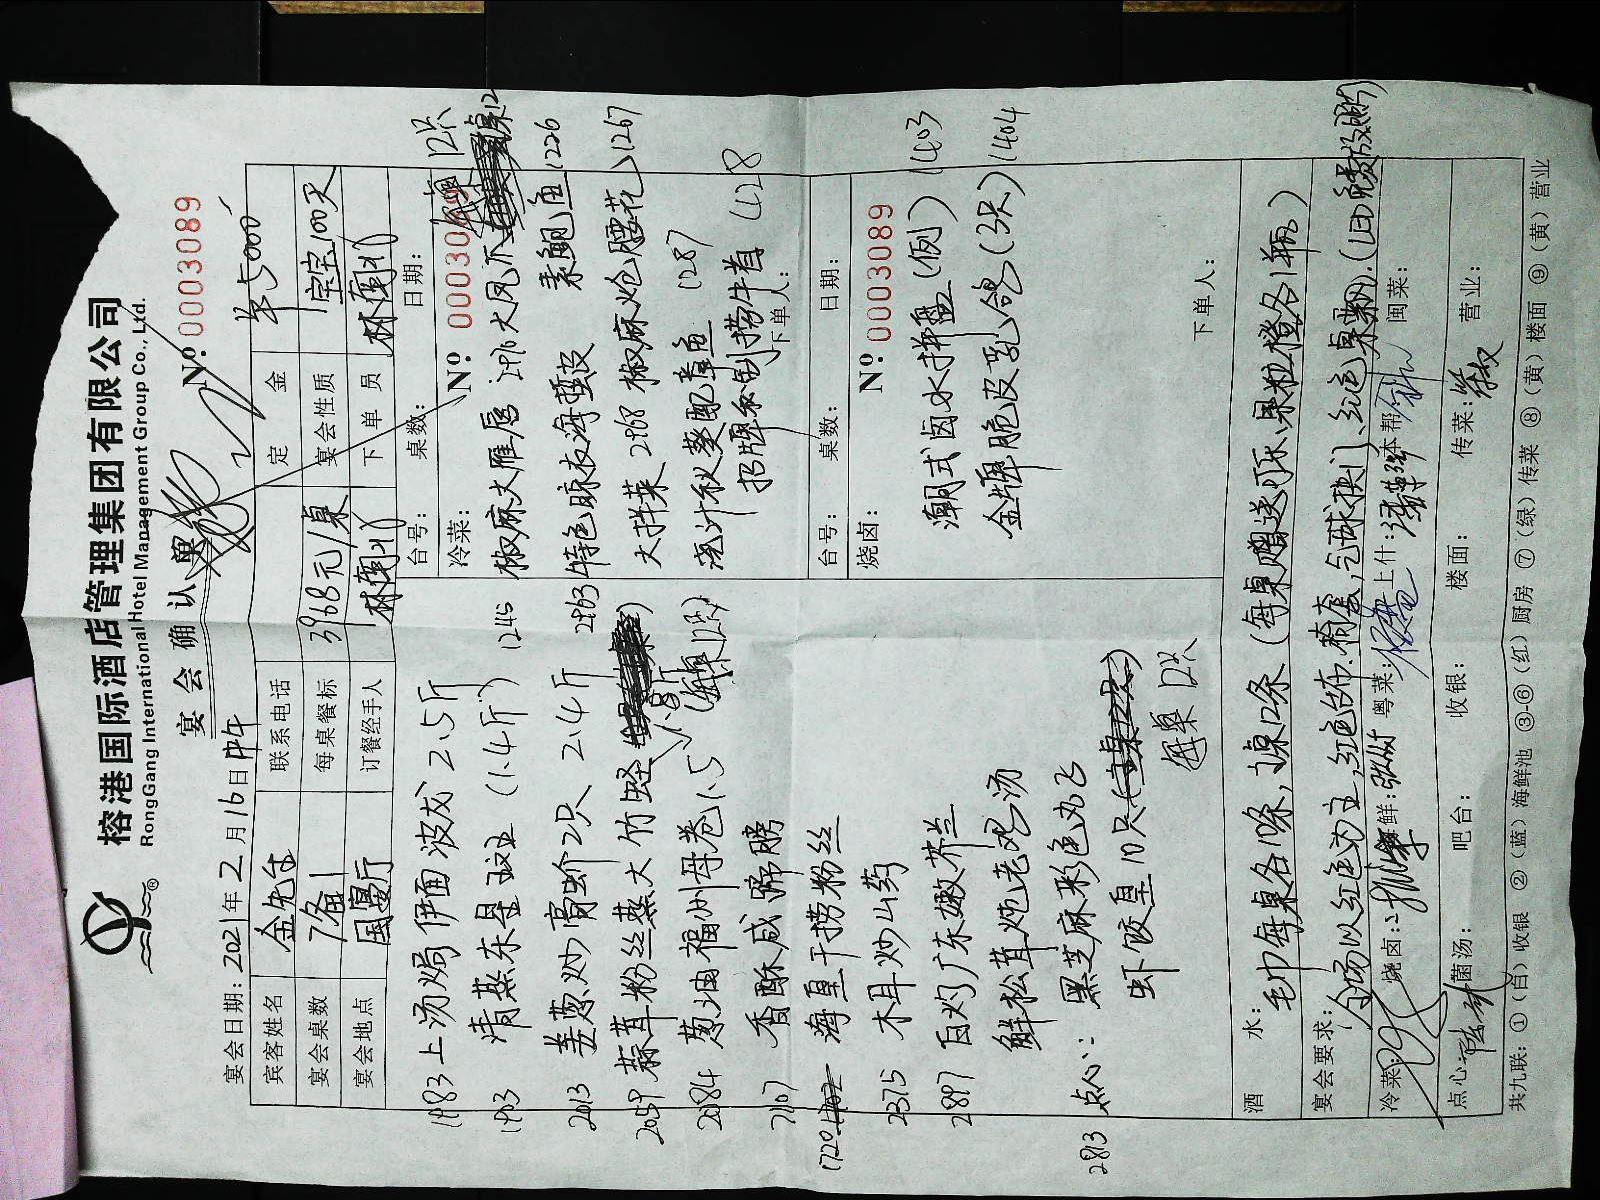 榕港国际酒店管理集团有限公司
RongGang International Hotel Management Group Co., Ltd.
宴会确认单
Nº 00003089
宴会日期: 2021年2月16日中午
宾客姓名 金先生 联系电话 定金 5000
宴会桌数 7备1 每桌餐标 3968元/桌 宴会性质 宝宝100天
宴会地点 国宴厅 订餐经手人 下单员
1983 上汤焗伊面波龙 2.5斤
1903 清蒸东星斑 (1.4斤) 1245
2013 姜葱炒膏蟹2只 2.4斤
2059 蒜茸粉丝蒸大竹蛏 1.8斤
2084 葱油福州母卷1.5
2107 香酥咸蹄膀
1720 海皇干捞粉丝
2375 木耳炒山药
2897 白灼广东嫩芥兰
鲜松茸炖老鸡汤
2813 点心: 黑芝麻彩色丸子
虾饺皇10只
每桌12只
台号: 桌数: 日期:
冷菜: Nº 00003089
椒麻大雁唇 2976 大凤爪 每桌12只
2963 特色晾衣海蜇皮 素鲍鱼 1226
大拌菜 2968 椒麻炝腰花 1267
浇汁秋葵配章鱼 1287
招牌秘制捞牛首 1428
下单人:
台号: 桌数: 日期:
烧卤: Nº 00003089
潮式卤水拼盘(例) 1403
金牌脆皮乳鸽(3只) 1404
下单人:
酒水: 毛巾每桌各10条, 1桌12条 (每桌赠送可乐、果粒橙各1瓶)
宴会要求: 会场以红色为主, 红色布.椅套,气球拱门、红色桌
冷菜: 烧卤: 海鲜: 粤菜: 上什: 本帮: 闽菜:
点心: 菌汤: 吧台: 收银: 楼面: 传菜: 营业:
共九联: ①(白)收银 ②(蓝)海鲜池 ③-⑥(红)厨房 ⑦(绿)传菜 ⑧(黄)楼面 ⑨(黄)营业